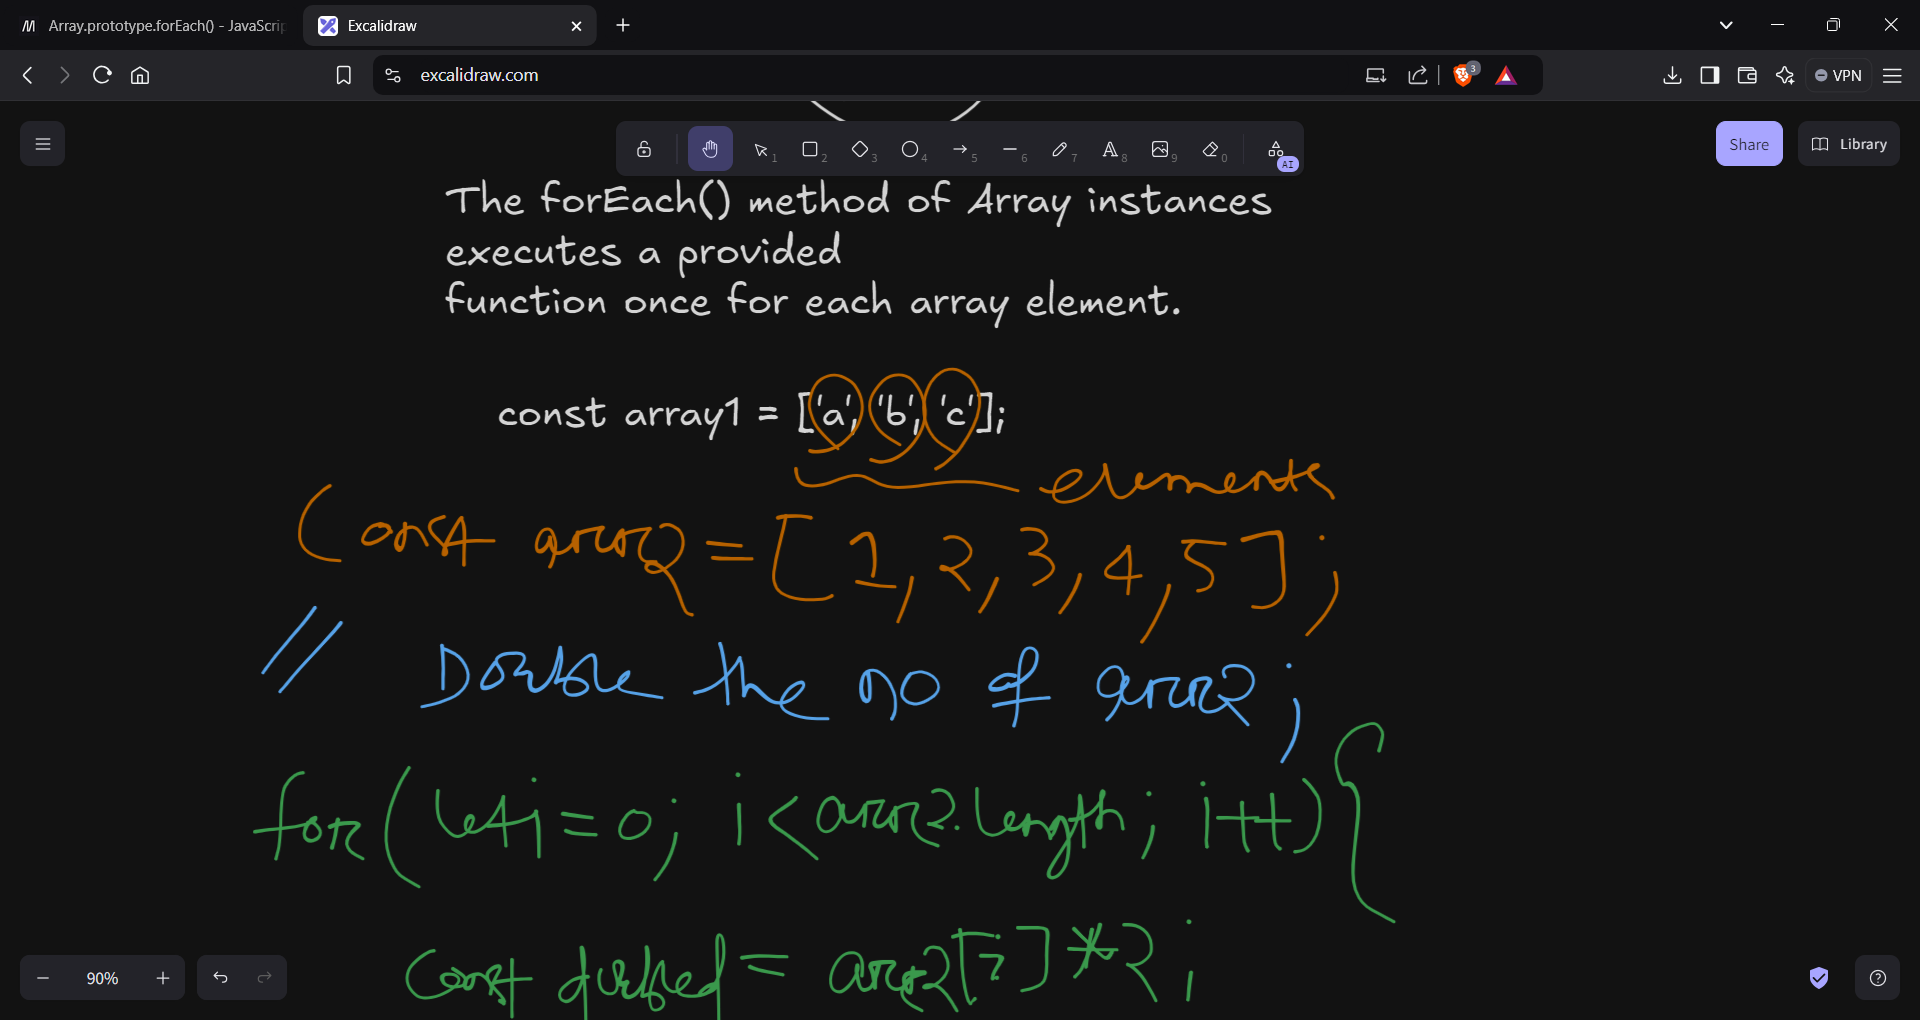 Array.prototype.forEach() - JavaScrip
Excalidraw
excalidraw.com
3
VPN
1
2
3
4
5
6
7
8
9
0
AI
Share
Library
The forEach() method of Array instances
executes a provided
function once for each array element.
const array1 = ['a', 'b', 'c'];
elements
Const arr2 = [1, 2, 3, 4, 5];
// Double the no of arr2;
for(let i=0; i<arr2.length; i++){
const dubled = arr2[i]*2;
90%